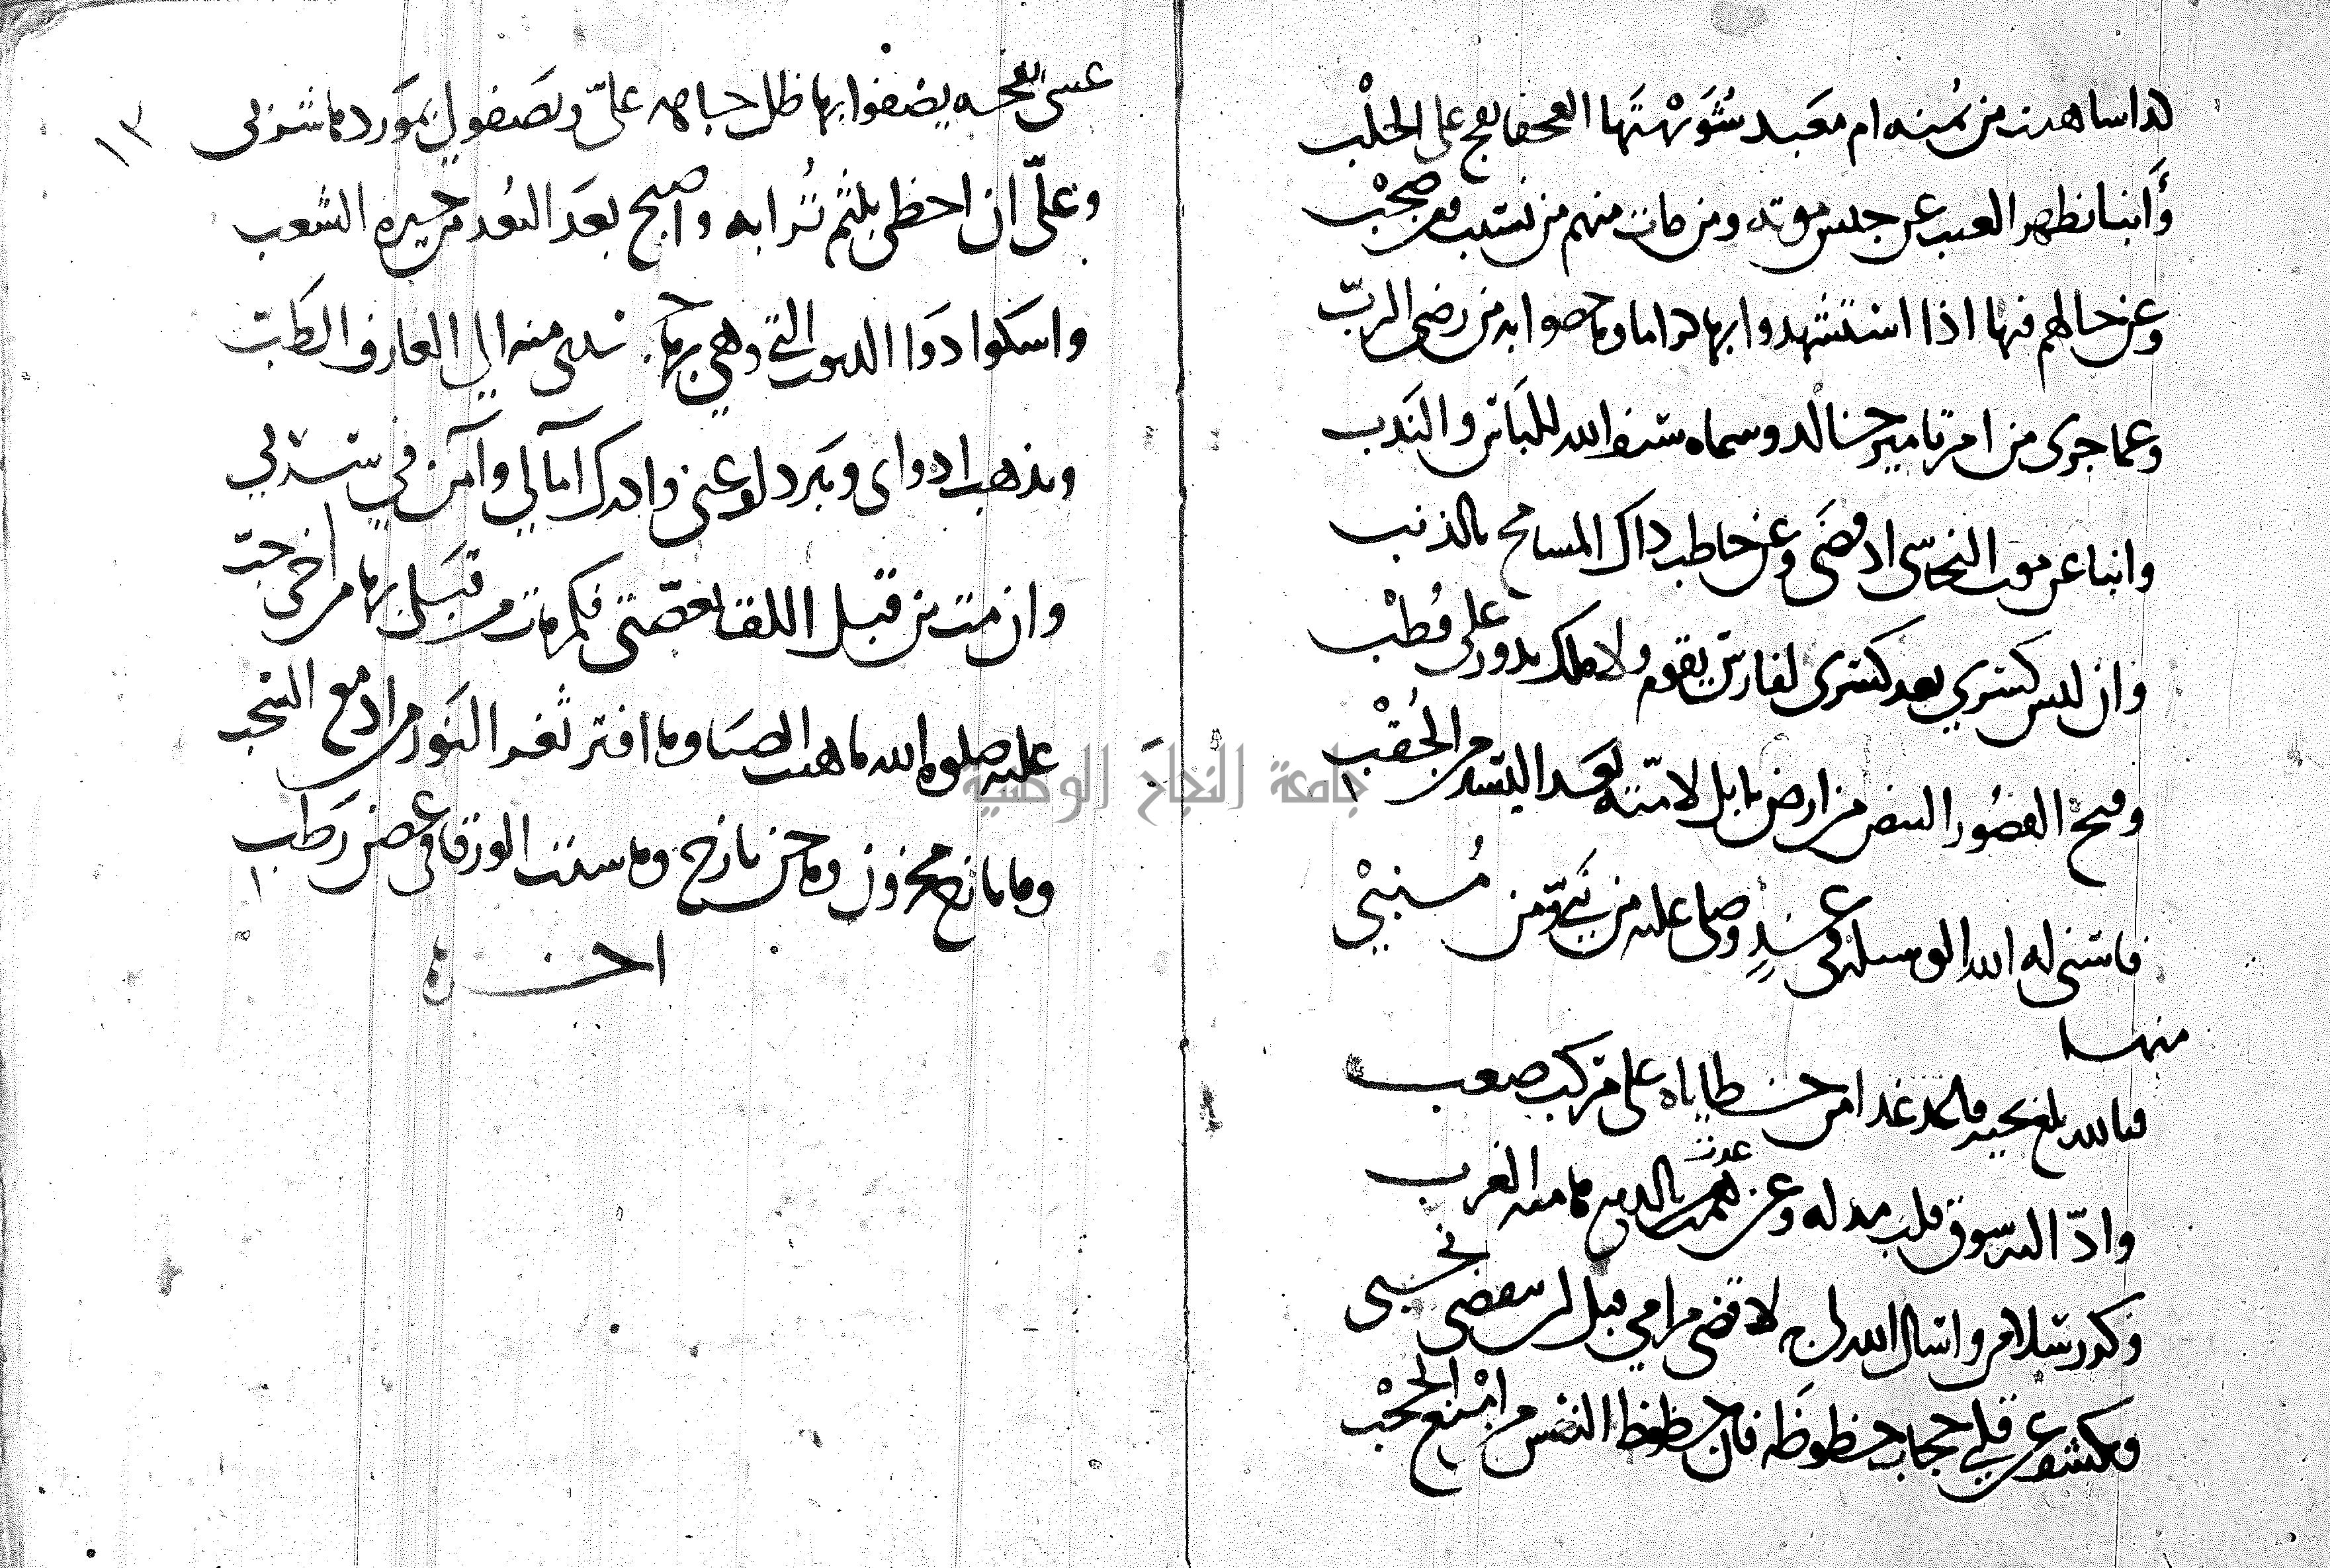 من يمنه ام معبد شوهتها العجفا بعج على الحلب
وأنبا بظهر الغيب عن جيش موته ومن مات منهم من نسيب ومن صحب
وعن حالهم فيها اذا استشهدوا بها كراما وما حصوا به من رضى الرب
وعما جرى من امرة تأمير خالد وسماه سيف الله للباس والندب
وانبا عن موت النجاشى اد قضى وعن حاطب داك المسامح بالذنب
وان ليس كسرى بعد كسرى لفارس يقوم ولا ملك يدور على قطب
وفتح القصور البيض من ارض بابل لامته بعد اليسير من الحقب
فاسنى له الله الوسيله فى غد وصلى عليه من نبى ومن منبى
منها
فبالله بلغ محمد غدا من خطاياه على مركب صعب
وادّ اليه سوق قلب مدله وعن عدت بالدمع مامنه الغرب
وكرر سلامى واسال الله لى لاقضى مرامى قبل ان ينقضى نحبى
ويكشف عن قلبى حجاب حظوظه فان حظوظ النفس من امنع الحجب
عسى نفحه يضفوا بها ظل جاهه علىّ ويصفو لى بمورد ما شربى
وعلّى ان احظى بلثم ترابه واصبح بعد البعد من جيرة الشعب
واشكوا دوا الذنوب التى دهى بها منه الى العارف الطب
ويذهب ادواى ويبرد لوعتى وادرك امالى وآمن فى سربى
وان مت من قبل اللقا بغصتى فكم مات من قبلى بها من اخى حب
عليه صلوة الله ما هبت الصبا وما افتر ثغر النور من ادمع السحب
وما ناح محزون وما حن نازح وما سدت الورقا فى غصن رطب
اخر
١٣
جامعة النجاح الوطنية